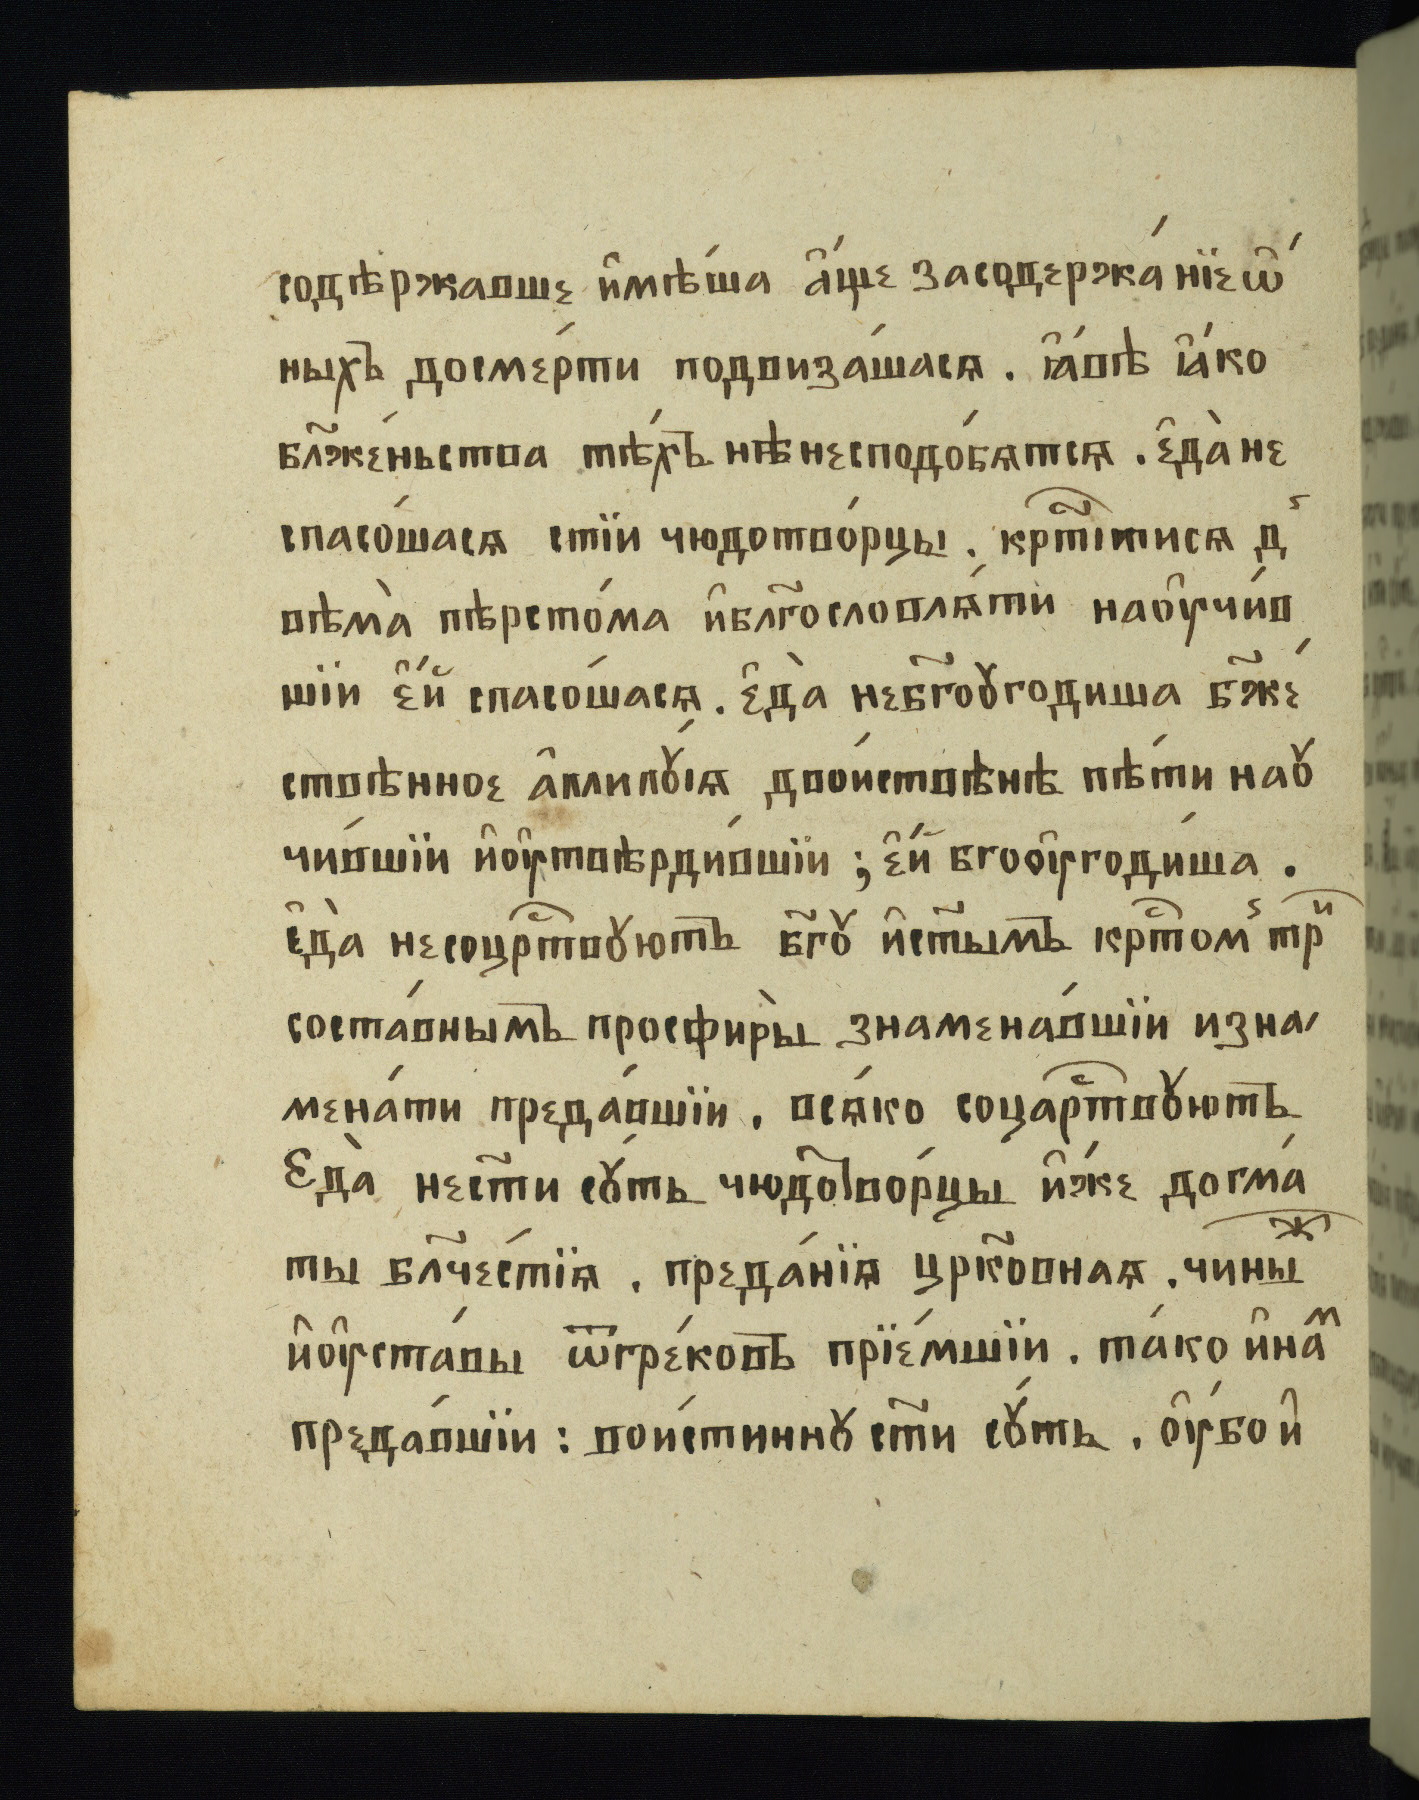 содѣржавше и҆мѣ́ша а҆́ще засодержа́нїе ѡ҆́
ныхъ досме́рти подвиза́шася . ꙗ҆́вѣ ꙗ҆́ко
бл҃же́ньства тѣ́хъ нѣ несподо́бятся . є҆да̀ не
спасо́шася стїи чюдотво́рцы . крⷭ҇тітися дʾ
вѣма̀ пѣрсто́ма и҆бл҃гословля́ти наоу҆чи́в
шїи є҆́й спасо́шася . є҆да̀ неб҃гоꙋгодиша б҃же́
ствѣнное а҆ллилꙋ́їя двои́ствѣнѣ пѣ́ти наꙋ
чи́вшїи и҆оу҆твѣрди́вшїи ; є҆́й бгооу҆годи́ша .
є҆да̀ несоцрⷭ҇твꙋютъ б҃гꙋ и҆ст҃ымъ крⷭ҇томʾ трⷤи
соста́внымъ просфиры̀ знамена́вшїи изна
мена́ти преда́вшїи . вся́ко соцарⷭ҇твꙋютъ
Єда̀ нест҃и сꙋ́ть чюдо҃тво́рцы и҆́же догма́
ты бл҃че́стїя . преда́нїя црк҃овная . чиныⷤ
и҆оу҆ста́вы ѿгре́ковъ прїе́мшїи . та́ко и҆наⷨ
преда́вшїи : вои́стиннꙋ ст҃и сꙋ́ть . оу҆́бо и҆